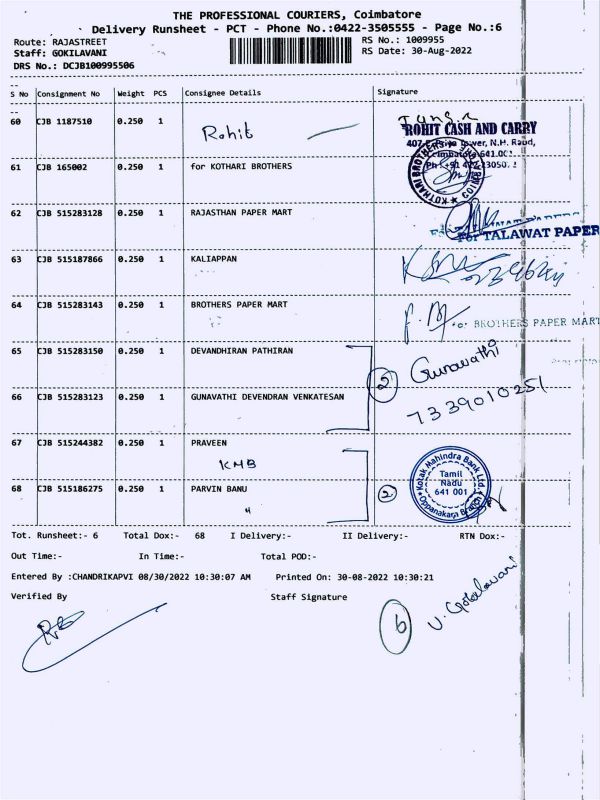 THE PROFESSIONAL COURIERS, Coimbatore
Delivery Runsheet - PCT - Phone No.:0422-3505555 - Page No.:6
Route: RAJASTREET RS No.: 1009955
Staff: GOKILAVANI RS Date: 30-Aug-2022
DRS No.: DCJB100995506
S No Consignment No Weight PCS Consignee Details Signature
60 CJB 1187510 0.250 1 Rohit
ROHIT CASH AND CARRY
Tower, N.H. Road,
Coimbatore
61 CJB 165002 0.250 1 for KOTHARI BROTHERS
KOTHARI BROTHERS
62 CJB 515283128 0.250 1 RAJASTHAN PAPER MART
For TALAWAT PAPER
63 CJB 515187866 0.250 1 KALIAPPAN
64 CJB 515283143 0.250 1 BROTHERS PAPER MART
BROTHERS PAPER MART
65 CJB 515283150 0.250 1 DEVANDHIRAN PATHIRAN
2 Gunavathi
66 CJB 515283123 0.250 1 GUNAVATHI DEVENDRAN VENKATESAN
7339010251
67 CJB 515244382 0.250 1 PRAVEEN
KMB
Kotak Mahindra Bank Ltd.
Tamil
Nadu
641 001
Oppanakara Branch
68 CJB 515186275 0.250 1 PARVIN BANU
"
2
Tot. Runsheet:- 6 Total Dox:- 68 I Delivery:- II Delivery:- RTN Dox:-
Out Time:- In Time:- Total POD:-
Entered By :CHANDRIKAPVI 08/30/2022 10:30:07 AM Printed On: 30-08-2022 10:30:21
Verified By Staff Signature
6 V. Gokilavani